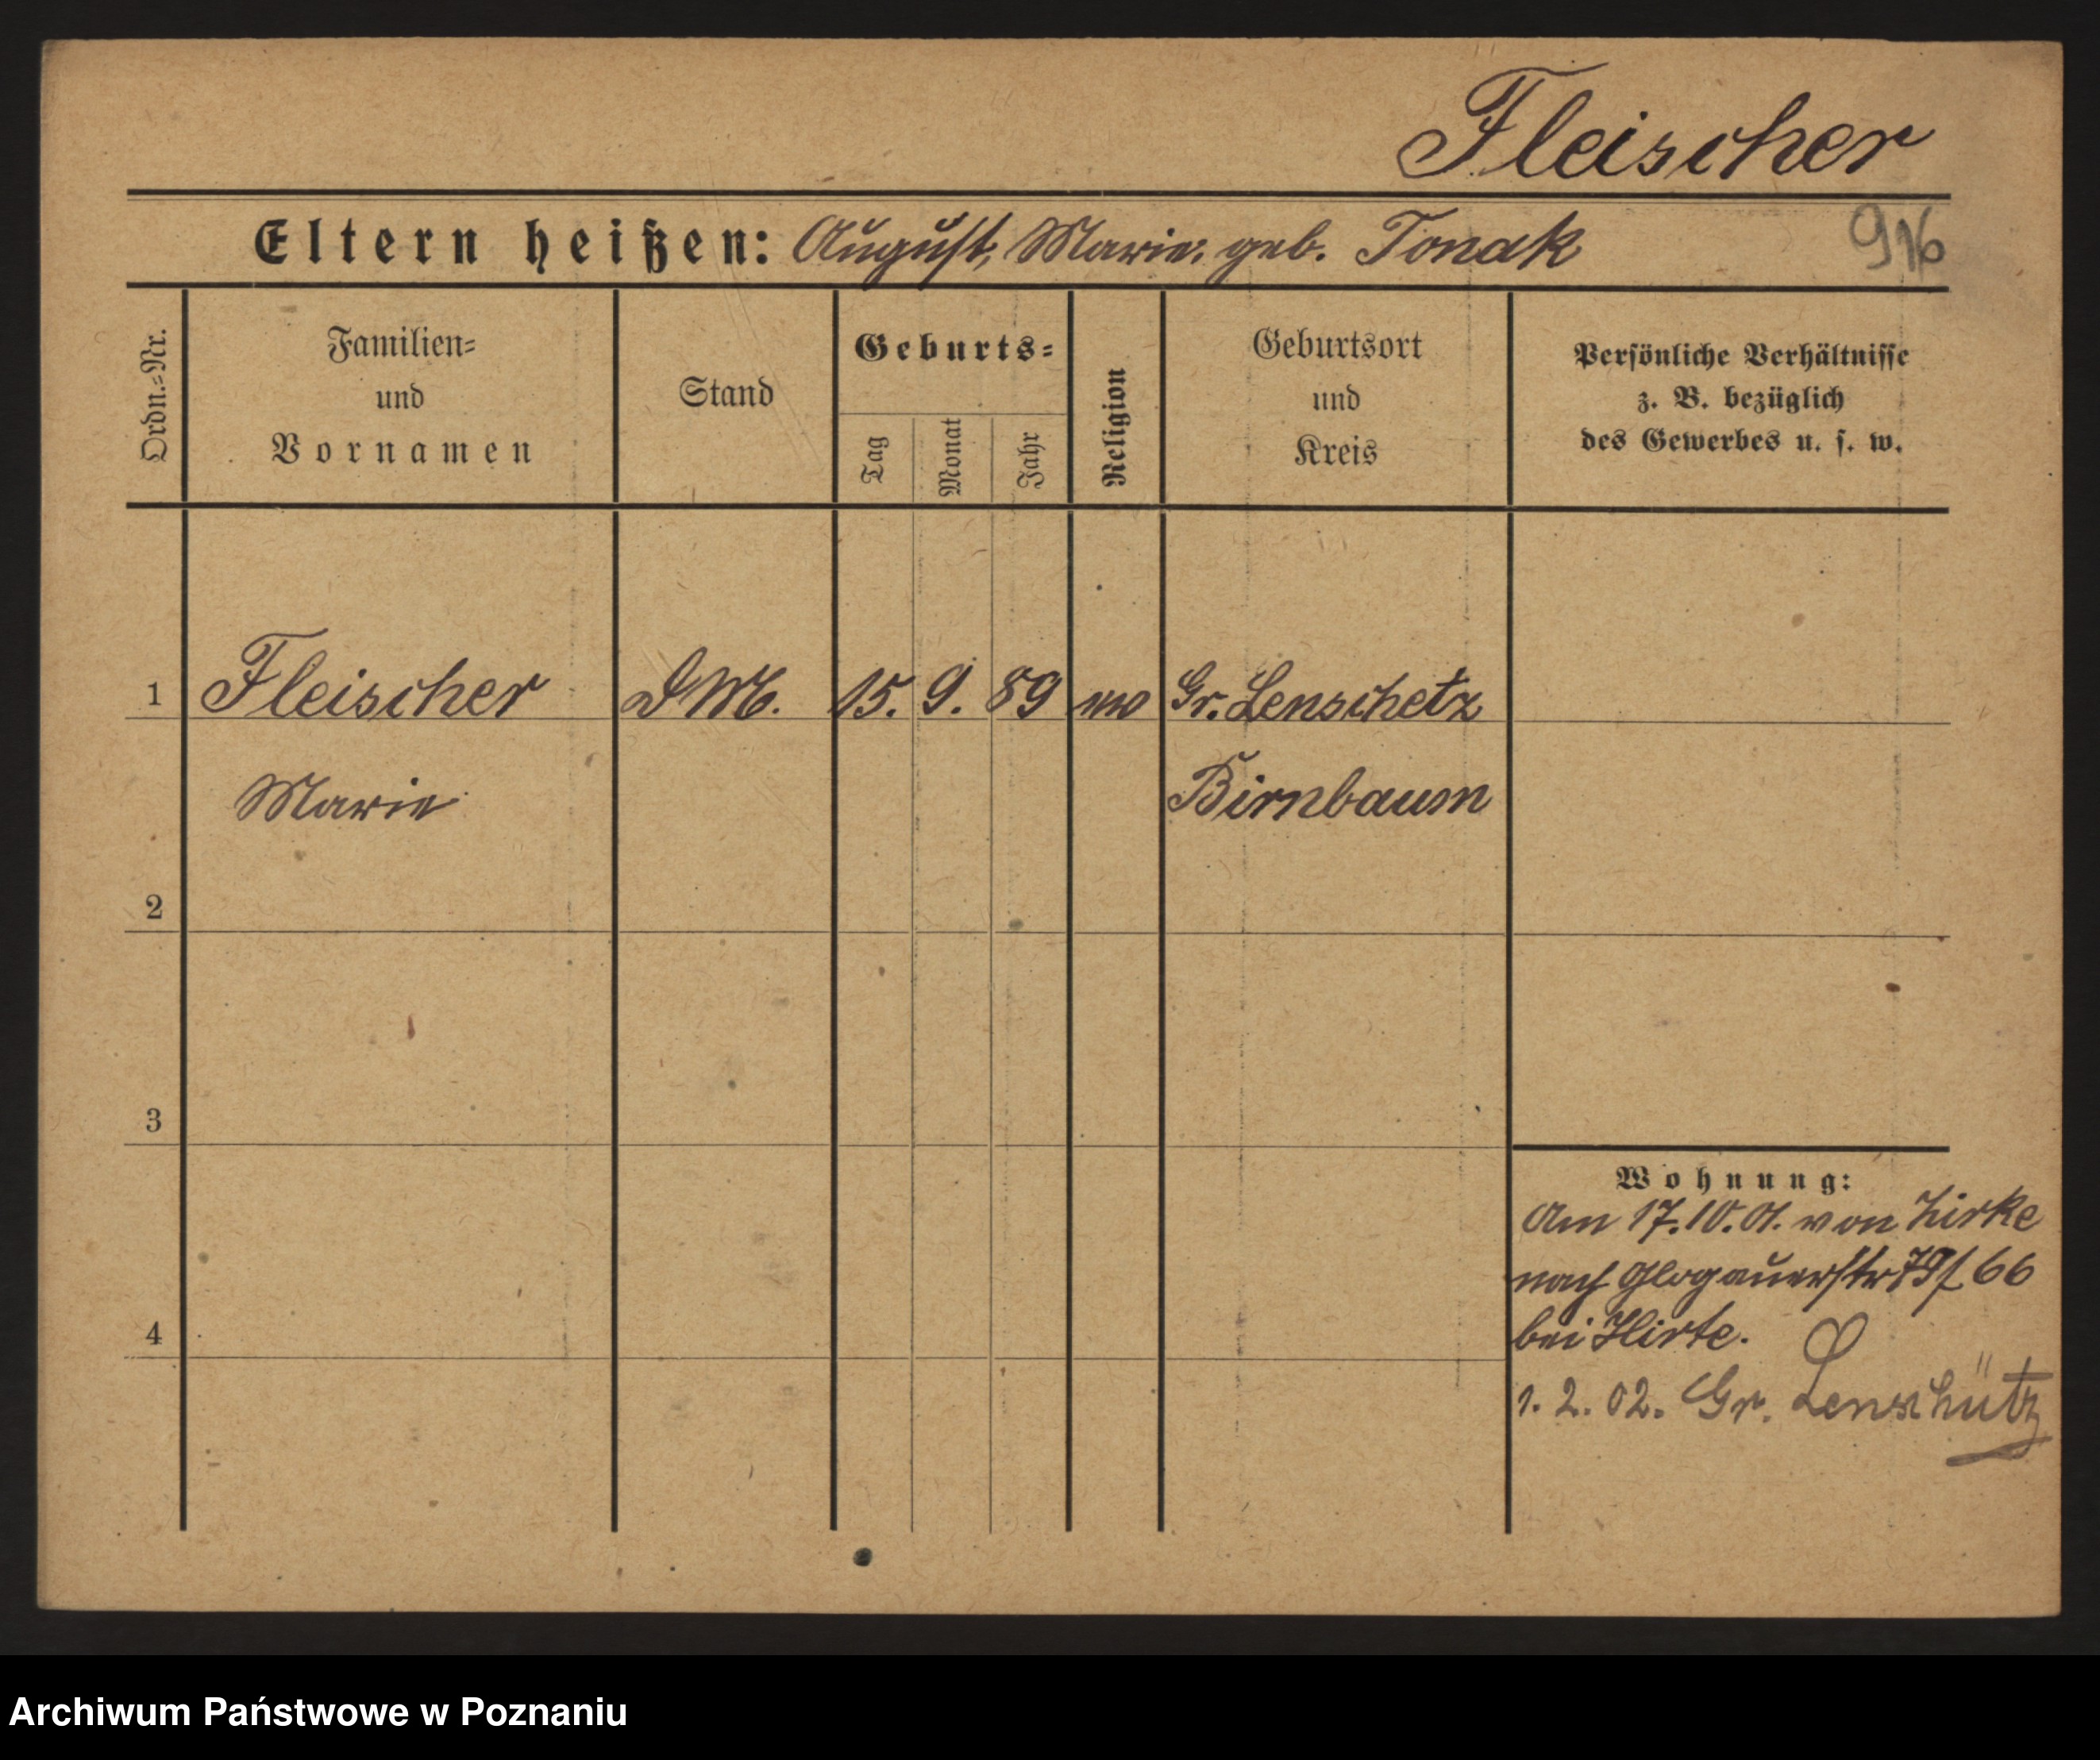 Fleischer
Eltern heißen: August, Marie, geb. Tonak
916
Ordn.=Nr.
Familien= und Vornamen
Stand
Geburts=
Tag
Monat
Jahr
Religion
Geburtsort und Kreis
Persönliche Verhältnisse
z. B. bezüglich
des Gewerbes u. s. w.
1 Fleischer D M. 15. 9. 89 Gr. Lenschetz
Marie Birnbaum
2
3
4
Wohnung:
Am 17.10.01. von Zirke
nach Glogauerstr 79/ 66
bei Hirte.
1. 2. 02. Gr. Lenschütz
Archiwum Państwowe w Poznaniu